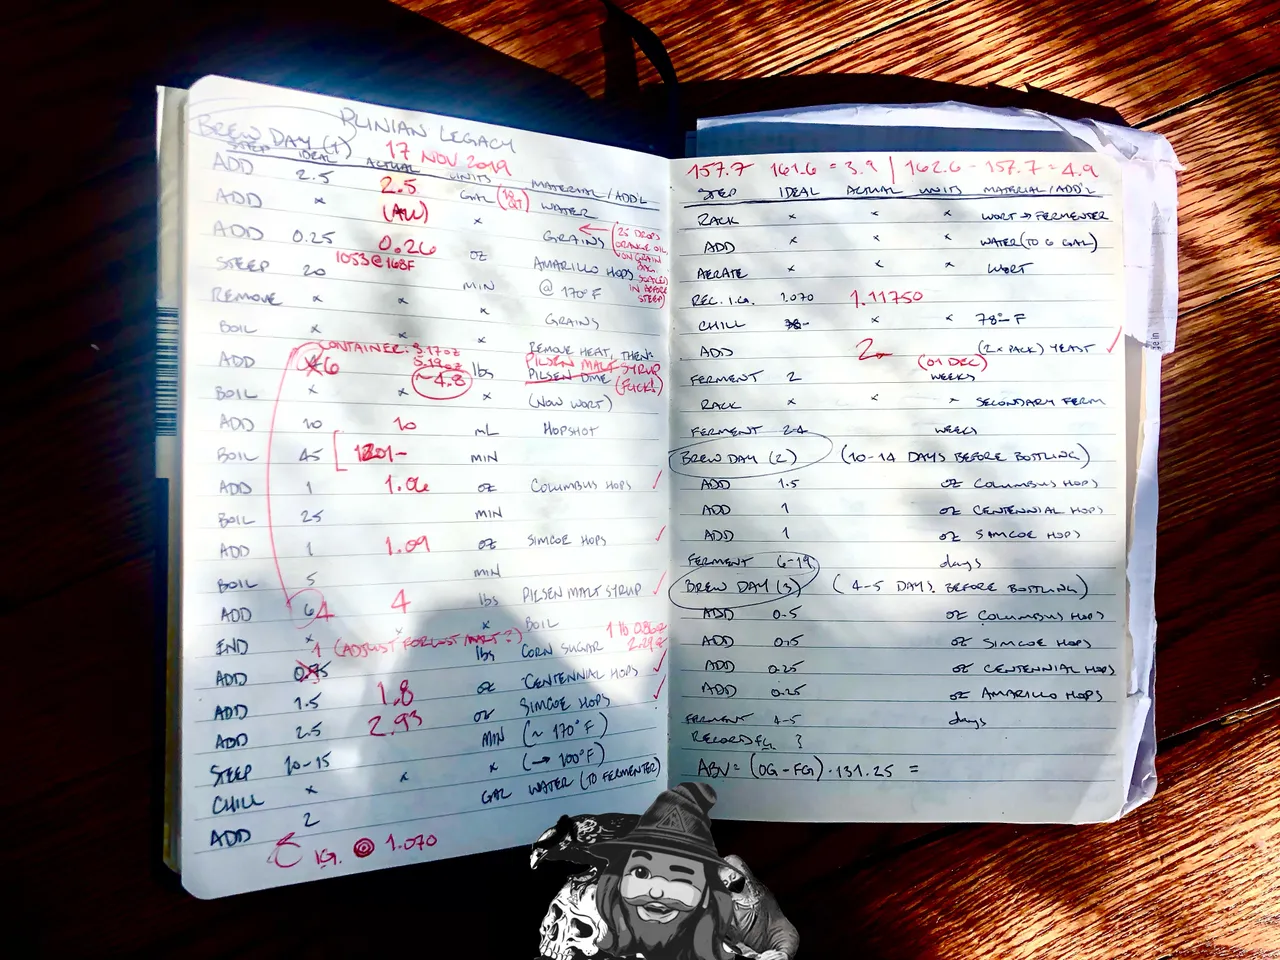 PLINIAN LEGACY
BREW DAY (1)
17 NOV 2019
STEP IDEAL ACTUAL UNITS MATERIAL/ADD'L
ADD 2.5 2.5 GAL WATER
ADD × (AW) × GRAINS ← (25 DROPS ORANGE OIL ON GRAIN BAG. IN BEFORE STEEP)
ADD 0.25 0.26 OZ AMARILLO HOPS
1053@168F
STEEP 20 MIN @ 170°F
REMOVE × × × GRAINS
BOIL × × × REMOVE HEAT, THEN:
CONTAINER: 3.17oz
3.19oz
PILSEN MALT SYRUP
ADD 6 ~4.8 lbs PILSEN DME (FUCK!)
BOIL × × × (NOW WORT)
ADD 10 10 mL HOPSHOT
BOIL 45 1201- MIN
ADD 1 1.06 OZ COLUMBUS HOPS ✓
BOIL 25 MIN
ADD 1 1.09 OZ SIMCOE HOPS ✓
BOIL 5 MIN
ADD 64 4 lbs PILSEN MALT SYRUP ✓
END × × × BOIL
1 (ADJUST FOR LOST MALT?) 1 lb 0.86oz
2.29oz
ADD 0.75 lbs CORN SUGAR
ADD 1.5 1.8 OZ CENTENNIAL HOPS ✓
ADD 2.5 2.93 OZ SIMCOE HOPS ✓
STEEP 10-15 MIN (~170°F)
CHILL × × × (→ 100°F)
ADD 2 GAL WATER (TO FERMENTER)
I.G. @ 1.070
157.7 161.6 = 3.9 | 162.6 - 157.7 = 4.9
STEP IDEAL ACTUAL UNITS MATERIAL/ADD'L
RACK × × × WORT → FERMENTER
ADD × × × WATER (TO 6 GAL)
AERATE × × × WORT
REC. I.G. 1.070 1.11750
CHILL × × 78°F
ADD 2 (2× PACK) YEAST ✓
(01 DEC)
FERMENT 2 WEEKS
RACK × × × SECONDARY FERM
FERMENT 2-4 WEEKS
BREW DAY (2) (10-14 DAYS BEFORE BOTTLING)
ADD 1.5 OZ COLUMBUS HOPS
ADD 1 OZ CENTENNIAL HOPS
ADD 1 OZ SIMCOE HOPS
FERMENT 6-19 days
BREW DAY (3) (4-5 DAYS BEFORE BOTTLING)
ADD 0.5 OZ COLUMBUS HOPS
ADD 0.5 OZ SIMCOE HOPS
ADD 0.25 OZ CENTENNIAL HOPS
ADD 0.25 OZ AMARILLO HOPS
FERMENT 4-5 days
RECORD F.G. }
ABV = (OG - FG) · 131.25 =